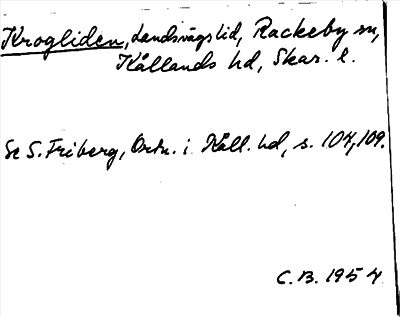 Krogliden, Landsvägslid, Rackeby sn,
Kållands hd, Skar. l.
Se S. Friberg, Ortn. i Kåll. hd, s. 104, 109.
C.B. 1954